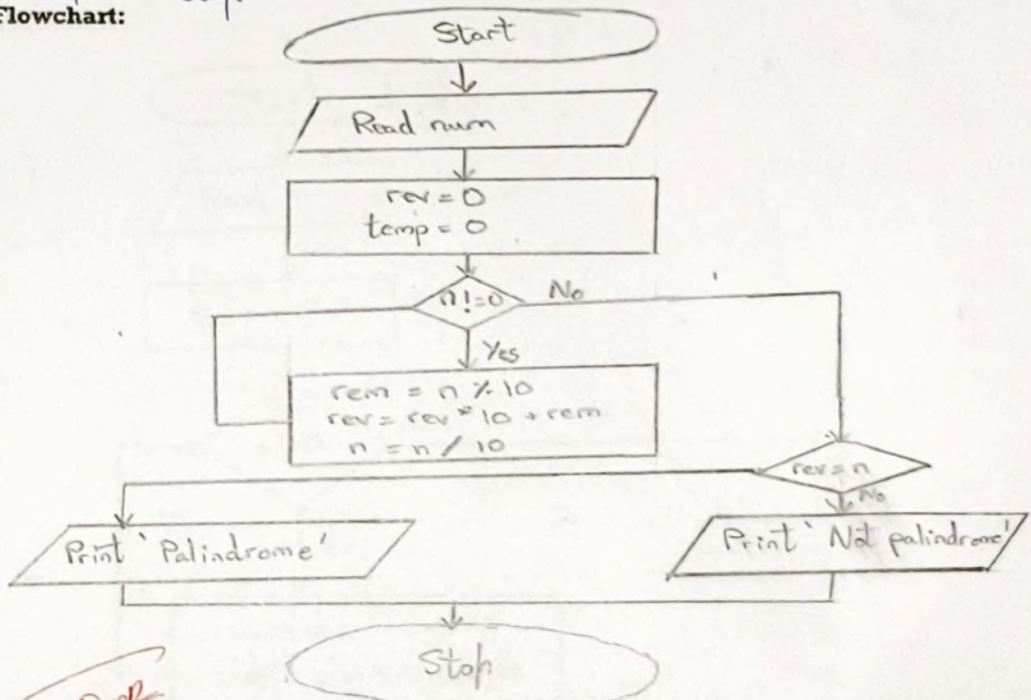 Flowchart:
Start
Read num
rev = 0
temp = 0
n != 0
No
Yes
rem = n % 10
rev = rev * 10 + rem
n = n / 10
rev = n
No
Print 'Palindrome'
Print 'Not palindrome'
Stop